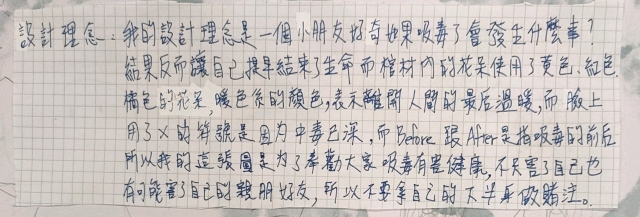 設計理念：我的設計理念是一個小朋友好奇如果吸毒了會發生什麼事？
結果反而讓自己提早結束了生命而棺材內的花朵使用了黃色、紅色
橘色的花朵,暖色系的顏色,表示離開人間的最后溫暖,而臉上
用了X的符號是因为中毒已深,而Before跟After是指吸毒的前后
所以我的這張圖是为了奉勸大家吸毒有害健康,不只害了自己也
有可能害了自己的親朋好友,所以不要拿自己的下半身做賭注。